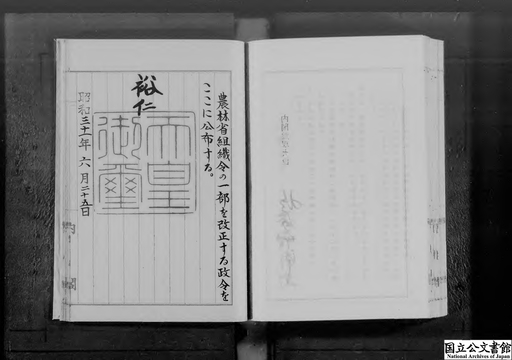 農林省組織令の一部を改正する政令を
ここに公布する。
裕仁
天皇
御璽
昭和三十一年六月二十五日
内閣
国立公文書館
National Archives of Japan